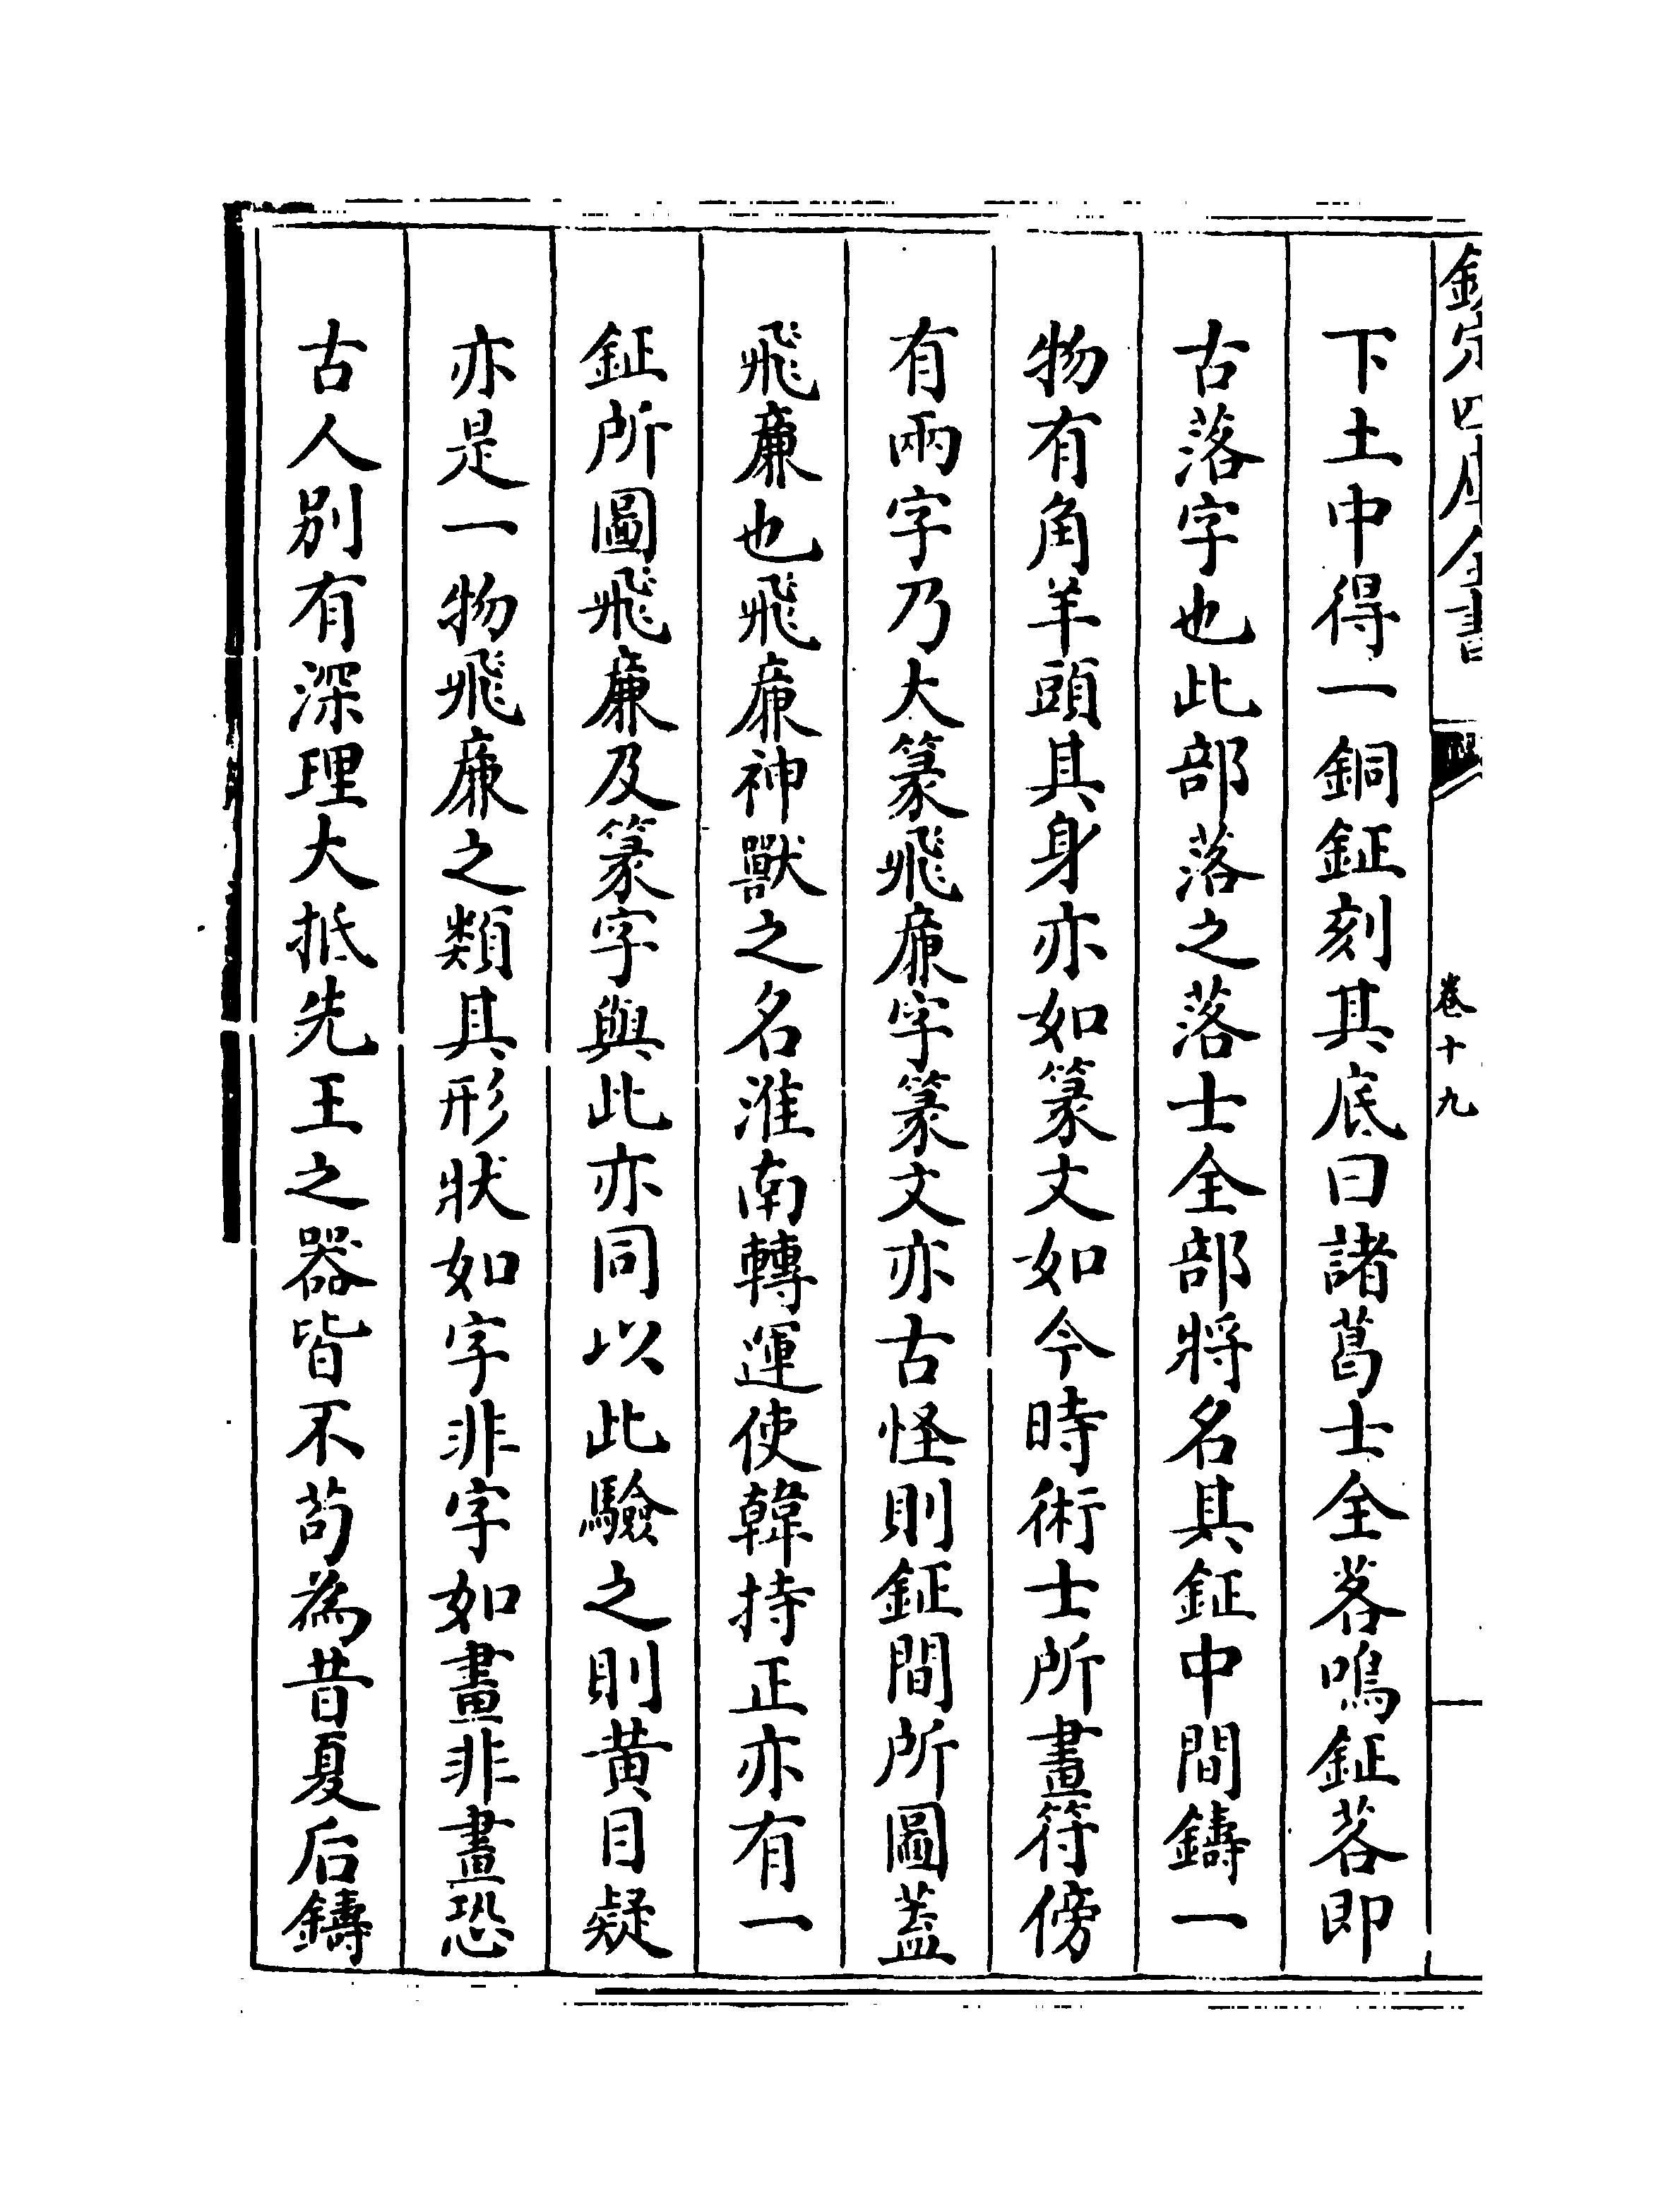 欽定四庫全書
卷十九
下土中得一銅鉦刻其底曰諸葛士全茖鳴鉦茖即
古落字也此部落之落士全部將名其鉦中間鑄一
物有角羊頭其身亦如篆文如今時術士所畫符傍
有兩字乃大篆飛廉字篆文亦古怪則鉦間所圖蓋
飛廉也飛廉神獸之名淮南轉運使韓持正亦有一
鉦所圖飛廉及篆字與此亦同以此驗之則黃目疑
亦是一物飛廉之類其形狀如字非字如畫非畫恐
古人別有深理大抵先王之器皆不苟為昔夏后鑄